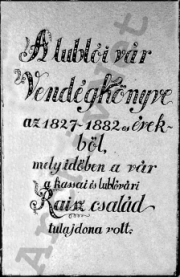 A lublói vár
Vendégkönyve
az 1827-1882 es évek-
ből,
mely időben a vár
a kassai és lublóvári
Raisz család
tulajdona volt.